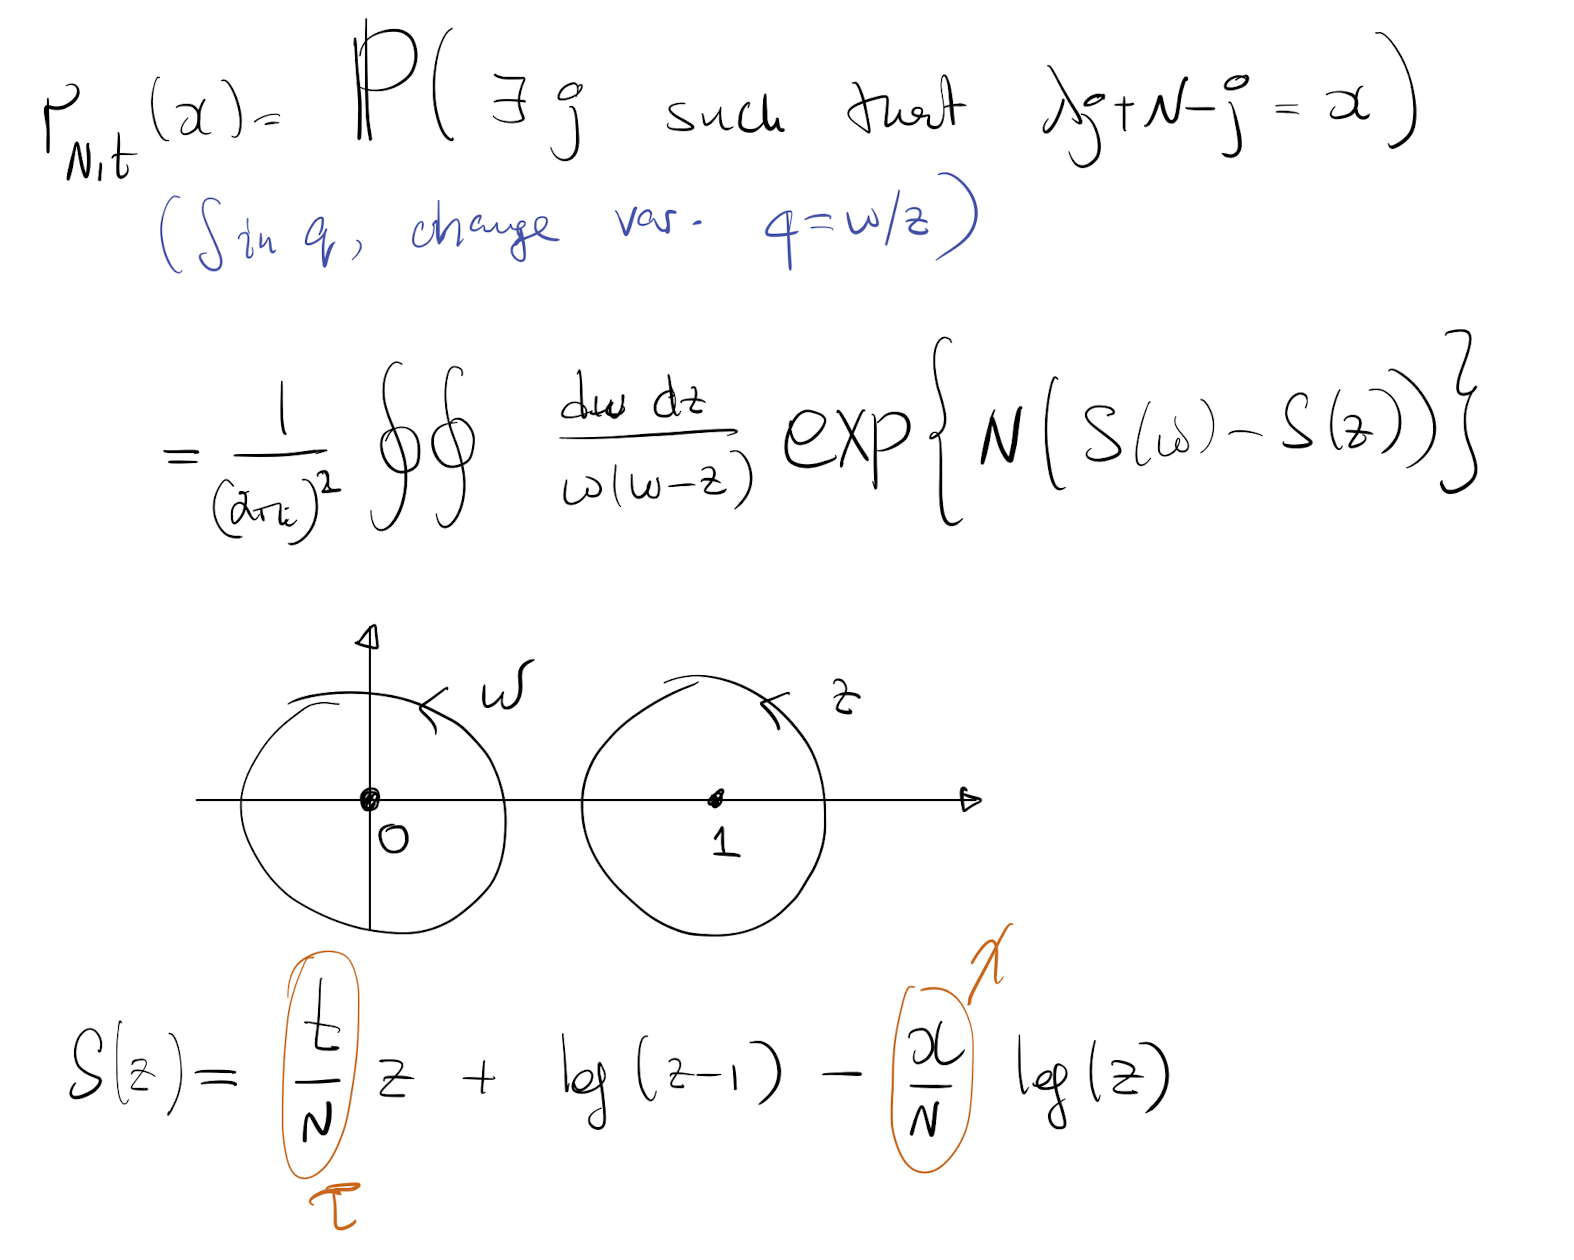 ρ_{N,t}(x) = ℙ( ∃ j such that λ_j + N − j = x )
(∫ in q, change var. q = w/z)
= 1/(2πi)² ∮∮ dw dz / w(w−z) exp{ N( S(w) − S(z) ) }
w z
0 1
χ
S(z) = t/N z + log(z−1) − x/N log(z)
τ